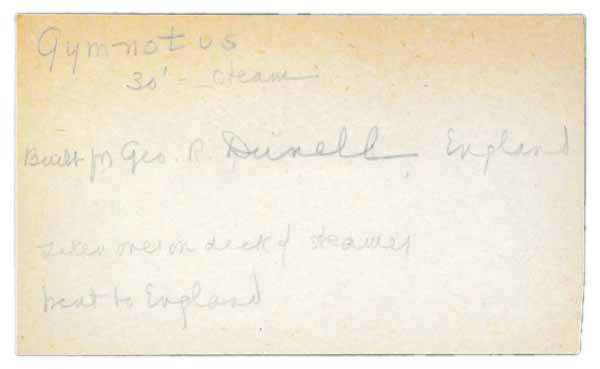 Gymnotus
30' - steam
Built for Geo. R. Dunell, England
taken over on deck of steamer
bent to England